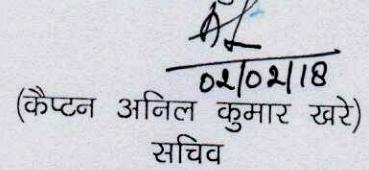 02/02/18
(कैप्टन अनिल कुमार खरे)
सचिव